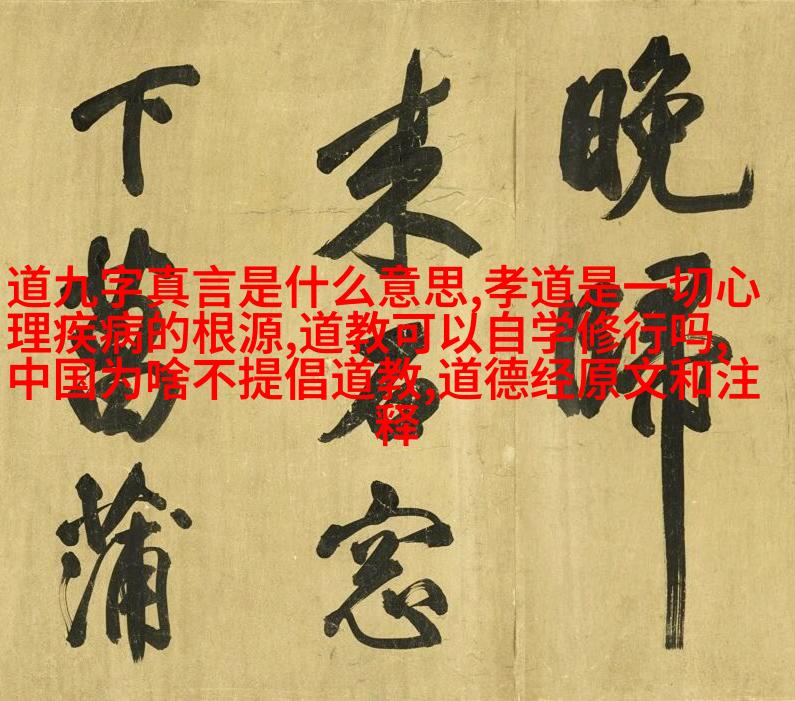 道九字真言是什么意思,孝道是一切心
理疾病的根源,道教可以自学修行吗,
中国为啥不提倡道教,道德经原文和注
释
晚
来窓
下蒲